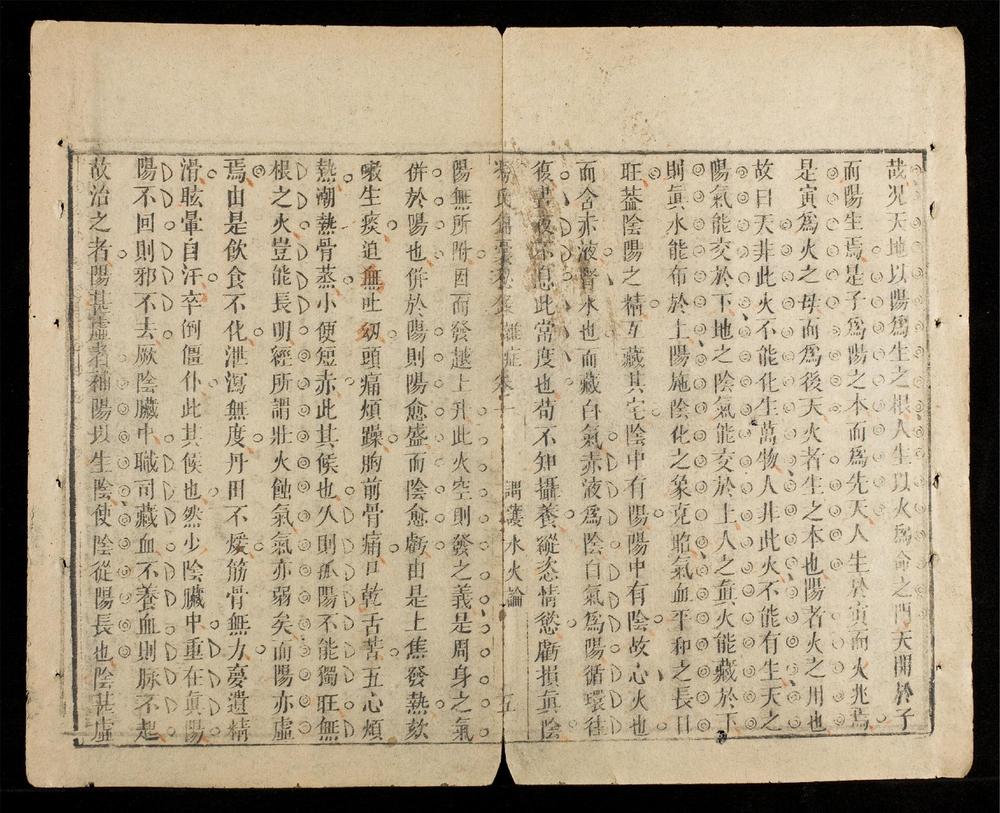 哉况天地以陽爲生之根人生以火爲命之門天開於子
而陽生焉是子爲陽之本而爲先天人生於寅而火兆焉
是寅爲火之母而爲後天火者生之本也陽者火之用也
故曰天非此火不能化生萬物人非此火不能有生天之
陽氣能交於下地之陰氣能交於上人之眞火能藏於下
則眞水能布於上陽施陰化之象克昭氣血平和之長日
旺葢陰陽之精互藏其宅陰中有陽陽中有陰故心火也
而含赤液腎水也而藏白氣赤液爲陰白氣爲陽循環往
復晝夜不息此常度也苟不知攝養縱恣情慾虧損眞陰
馮氏錦囊秘錄 雜症卷二 調護水火論 五
陽無所附因而發越上升此火空則發之義是周身之氣
併於陽也併於陽則陽愈盛而陰愈虧由是上焦發熱欬
嗽生痰迫血吐衂頭痛煩躁胸前骨痛口乾舌苦五心煩
熱潮熱骨蒸小便短赤此其候也久則孤陽不能獨旺無
根之火豈能長明經所謂壯火蝕氣氣亦弱矣而陽亦虛
焉由是飲食不化泄瀉無度丹田不煖筋骨無力憂遺精
滑眩暈自汗卒倒僵仆此其候也然少陰臟中重在眞陽
陽不回則邪不去厥陰臟中職司藏血不養血則脉不起
故治之者陽甚虛者補陽以生陰使陰從陽長也陰甚虛